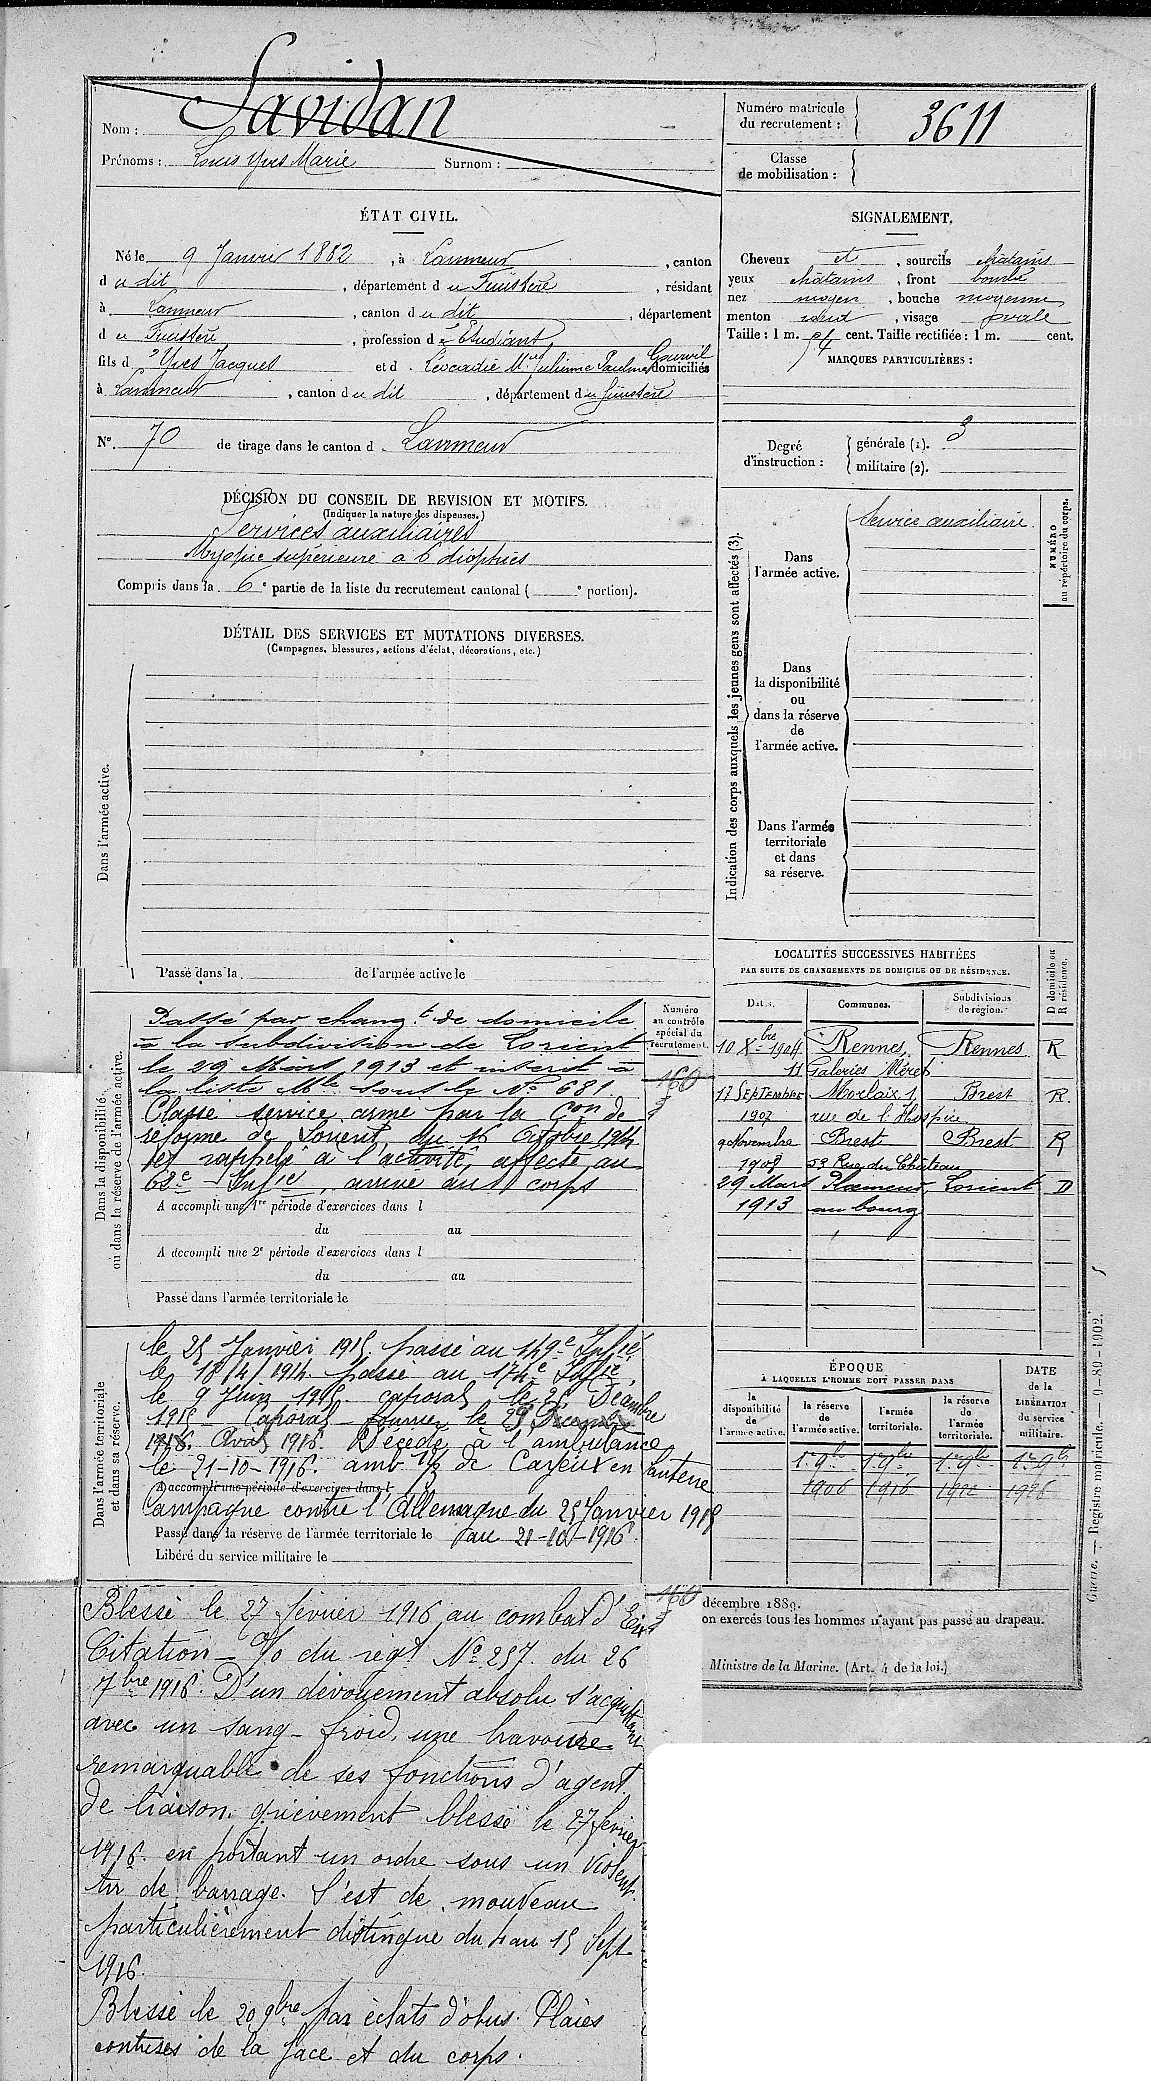 Nom : Savidan
Prénoms : Louis Yves Marie Surnom :
Numéro matricule
du recrutement : 3611
Classe
de mobilisation :
ÉTAT CIVIL.
Né le 9 Janvier 1882, à Lanmeur, canton
du dit, département du Finistère, résidant
à Lanmeur, canton du dit, département
du Finistère, profession d'Etudiant
fils d'Yves Jacques et d Léocadie Mie Julienne Pauline Gourvil domiciliés
à Lanmeur, canton du dit, département du Finistère
N°. 70 de tirage dans le canton d. Lanmeur
SIGNALEMENT.
Cheveux et, sourcils châtains
yeux châtains, front bombé
nez moyen, bouche moyenne
menton rond, visage ovale
Taille : 1 m. cent. Taille rectifiée : 1 m. cent.
MARQUES PARTICULIÈRES :
Degré
d'instruction :
générale (1). 3
militaire (2).
DÉCISION DU CONSEIL DE REVISION ET MOTIFS.
(Indiquer la nature des dispenses.)
Services auxiliaires
Myopie supérieure à 6 dioptries
Compris dans la 6e partie de la liste du recrutement cantonal ( e portion).
DÉTAIL DES SERVICES ET MUTATIONS DIVERSES.
(Campagnes, blessures, actions d'éclat, décorations, etc.)
Dans l'armée active.
Passé dans la de l'armée active le
Indication des corps auxquels les jeunes gens sont affectés (3).
Dans
l'armée active.
Service auxiliaire
NUMÉRO
au répertoire du corps.
Dans
la disponibilité
ou
dans la réserve
de
l'armée active.
Dans l'armée
territoriale
et dans
sa réserve.
Dans la disponibilité
ou dans la réserve de l'armée active.
Passé par changt de domicile
à la subdivision de Lorient
le 29 Mars 1913 et inscrit à
la liste Mle sous le No 681
Classé service armé par la Con de
réforme de Lorient du 16 Octobre 1914
et rappelé à l'activité, affecté au
62e Infie, arrivé au corps
A accompli une 1re période d'exercices dans l
du au
A accompli une 2e période d'exercices dans l
du au
Passé dans l'armée territoriale le
Numéro
au contrôle
spécial du
recrutement.
160
LOCALITÉS SUCCESSIVES HABITÉES
PAR SUITE DE CHANGEMENTS DE DOMICILE OU DE RÉSIDENCE.
Dates. Communes. Subdivisions
de région.
D domicile ou
R résidence.
10 Xbre 1904 Rennes, Rennes R
11 Galeries Méret
17 Septembre Morlaix 1 Brest R
1907 rue de l'Hospice
9 Novembre Brest Brest R
1908 53 Rue du Château
29 Mars Ploemeur Lorient D
1913 au bourg
Dans l'armée territoriale
et dans sa réserve.
le 25 Janvier 1915. passé au 149e Infie
le 18/4/1914. passé au 174e Infie,
le 9 Juin 1915 caporal le 25 Décembre
1915 Caporal-fourrier le 29 Décembre
1915. Avis 1916. Décédé à l'ambulance
le 21-10-1916. amb 1/3 de Cayeux en Santerre
A accompli une période d'exercices dans l
Campagne contre l'Allemagne du 25 Janvier 1915
Passé dans la réserve de l'armée territoriale le au 21-10-1916
Libéré du service militaire le
ÉPOQUE
À LAQUELLE L'HOMME DOIT PASSER DANS
DATE
de la
LIBÉRATION
du service
militaire.
la
disponibilité
de
l'armée active.
la réserve
de
l'armée active.
l'armée
territoriale.
la réserve
de
l'armée
territoriale.
1er 9bre 1er 9bre 1er 9bre 1er 9bre
1906 1916 1922 1926
Guerre. — Registre matricule. — 9-89-1902.
160
décembre 1889.
on exercés tous les hommes n'ayant pas passé au drapeau.
Ministre de la Marine. (Art. 4 de la loi.)
Blessé le 27 février 1916 au combat d'Eix
Citation - O/o du régt No 257 du 26
7bre 1916. D'un dévouement absolu s'acquittant
avec un sang-froid, une bravoure
remarquable de ses fonctions d'agent
de liaison. grièvement blessé le 27 février
1916. en portant un ordre sous un violent
tir de barrage. S'est de nouveau
particulièrement distingué du 4 au 15 Sept
1916.
Blessé le 20 9bre par éclats d'obus. Plaies
contuses de la face et du corps.